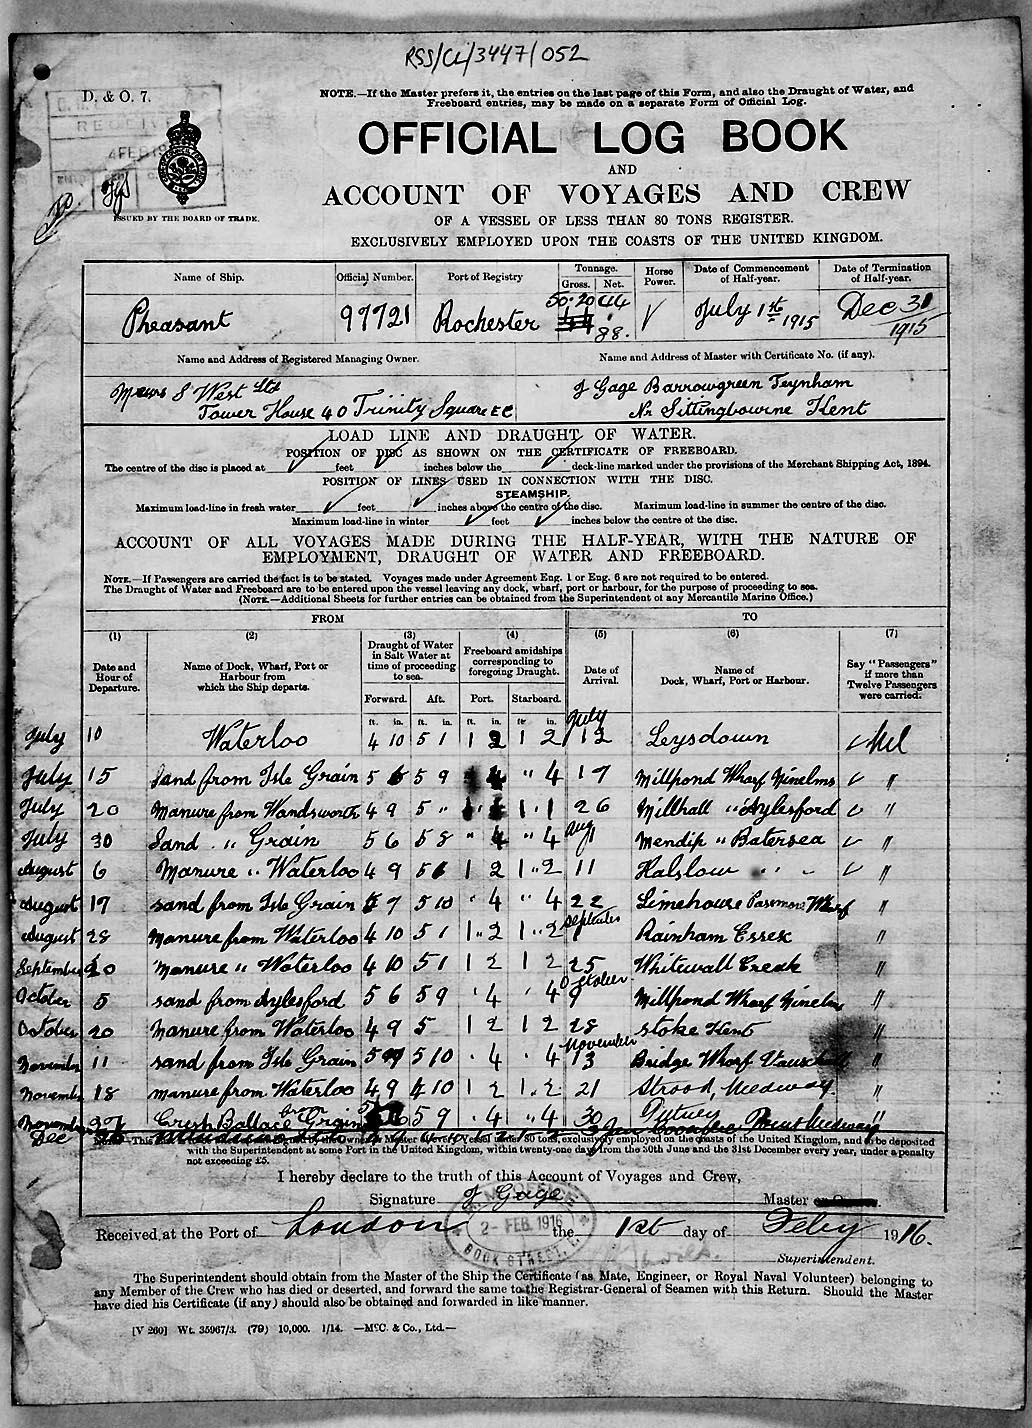 RSS/CL/3447/052
D. & O. 7.
RECEIVE
4 FEB 19
ISSUED BY THE BOARD OF TRADE.
NOTE.—If the Master prefers it, the entries on the last page of this Form, and also the Draught of Water, and
Freeboard entries, may be made on a separate Form of Official Log.
OFFICIAL LOG BOOK
AND
ACCOUNT OF VOYAGES AND CREW
OF A VESSEL OF LESS THAN 80 TONS REGISTER.
EXCLUSIVELY EMPLOYED UPON THE COASTS OF THE UNITED KINGDOM.
Name of Ship. Official Number. Port of Registry Tonnage. Gross. Net. Horse Power. Date of Commencement of Half-year. Date of Termination of Half-year.
Pheasant 97721 Rochester 50.20 44.88. July 1st 1915 Dec 31 1915
Name and Address of Registered Managing Owner. Name and Address of Master with Certificate No. (if any).
Messrs S West Ltd J Gage Barrowgreen Teynham
Tower House 40 Trinity Square EC Nr Sittingbourne Kent
LOAD LINE AND DRAUGHT OF WATER.
POSITION OF DISC AS SHOWN ON THE CERTIFICATE OF FREEBOARD.
The centre of the disc is placed at feet inches below the deck-line marked under the provisions of the Merchant Shipping Act, 1894.
POSITION OF LINES USED IN CONNECTION WITH THE DISC.
STEAMSHIP.
Maximum load-line in fresh water feet inches above the centre of the disc. Maximum load-line in summer the centre of the disc.
Maximum load-line in winter feet inches below the centre of the disc.
ACCOUNT OF ALL VOYAGES MADE DURING THE HALF-YEAR, WITH THE NATURE OF
EMPLOYMENT, DRAUGHT OF WATER AND FREEBOARD.
NOTE.—If Passengers are carried the fact is to be stated. Voyages made under Agreement Eng. 1 or Eng. 6 are not required to be entered.
The Draught of Water and Freeboard are to be entered upon the vessel leaving any dock, wharf, port or harbour, for the purpose of proceeding to sea.
(NOTE.—Additional Sheets for further entries can be obtained from the Superintendent of any Mercantile Marine Office.)
FROM TO
(1) (2) (3) (4) (5) (6) (7)
Date and Hour of Departure. Name of Dock, Wharf, Port or Harbour from which the Ship departs. Draught of Water in Salt Water at time of proceeding to sea. Freeboard amidships corresponding to foregoing Draught. Date of Arrival. Name of Dock, Wharf, Port or Harbour. Say "Passengers" if more than Twelve Passengers were carried.
Forward. Aft. Port. Starboard.
ft. in. ft. in. ft. in. ft. in.
July 10 Waterloo 4 10 5 1 1 2 1 2 July 12 Leysdown Nil
July 15 Sand from Isle Grain 5 6 5 9 4 " 4 17 Millpond Wharf Ninelms "
July 20 Manure from Wandsworth 4 9 5 " 1 1 26 Millhall " Aylesford "
July 30 Sand " Grain 5 6 5 8 " 4 " 4 Aug 1 Mendip " Batersea "
August 6 Manure " Waterloo 4 9 5 1 2 1 " 2 11 Halslow "
August 17 sand from Isle Grain 5 7 5 10 " 4 " 4 22 Limehouse Wharf "
August 28 manure from Waterloo 4 10 5 1 1 " 2 1 " 2 September 1 Rainham Essex "
September 20 manure " Waterloo 4 10 5 1 1 2 1 2 25 Whitewall Creak "
October 5 sand from Aylesford 5 6 5 9 ' 4 ' 4 October 9 Millpond Wharf Ninelms "
October 20 manure from Waterloo 4 9 5 1 2 1 2 28 stoke Kent "
November 11 sand from Isle Grain 5 9 5 10 . 4 . 4 November 13 Bridge Wharf "
November 18 manure from Waterloo 4 9 4 10 1 2 1 . 2 21 Strood, Medway "
November 27 Ballace from Grain 5 9 . 4 " 4 30 Putney "
Dec
NOTE.—This employed on the coasts of the United Kingdom, and to be deposited
with the Superintendent at some Port in the United Kingdom, within twenty-one days from the 30th June and the 31st December every year, under a penalty
not exceeding £5.
I hereby declare to the truth of this Account of Voyages and Crew,
Signature J Gage Master
Received at the Port of London the 1st day of Feby 1916.
2- FEB. 1916
DOCK STREET, E.
Superintendent.
The Superintendent should obtain from the Master of the Ship the Certificate (as Mate, Engineer, or Royal Naval Volunteer) belonging to
any Member of the Crew who has died or deserted, and forward the same to the Registrar-General of Seamen with this Return. Should the Master
have died his Certificate (if any) should also be obtained and forwarded in like manner.
[V 260] Wt. 35967/3. (79) 10,000. 1/14. —McC. & Co., Ltd.—